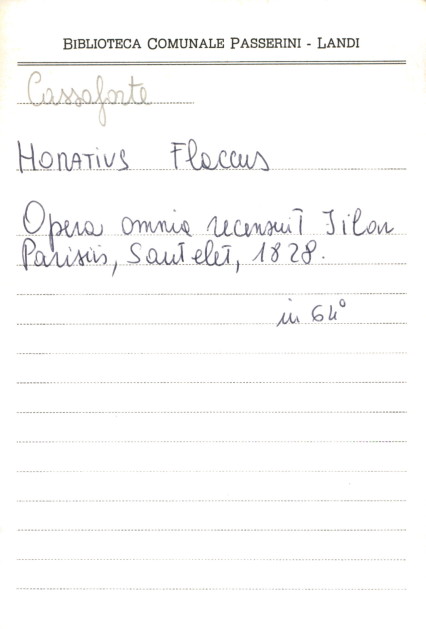 BIBLIOTECA COMUNALE PASSERINI - LANDI
Cassaforte
HORATIUS Flaccus
Opera omnia recensuit Filon
Parisiis, Sautelet, 1828.
in 64°